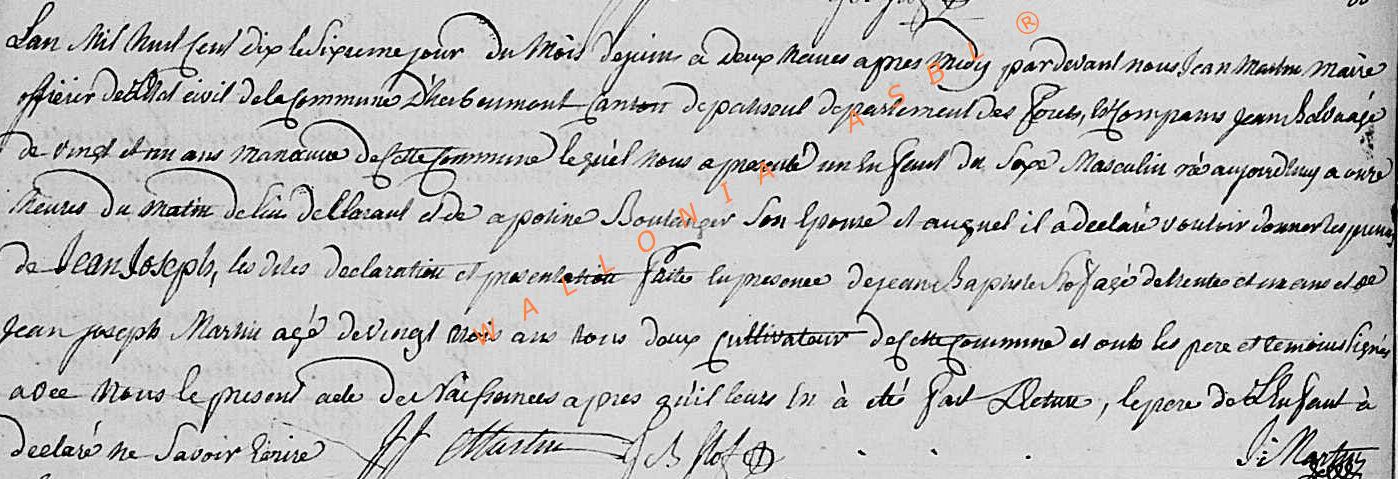 Lan Mil huit Cent dix le Sixieme jour du Mois de juin a deux heures apres Midy pardevant nous Jean Martin Maire
officier de l'Etat civil de la Commune D'herbeumont Canton de paliseul departement des Forets, Est Comparus Jean agé
de vingt et un ans Manœuvre de Cette Commune lequel nous a presenté un Enfant du Sexe Masculin né aujourdhuy a onze
heures du matin de lui declarant et de apoline Boulanger Son Epouse et auquel il a declaré vouloir donner les prenoms
de Jean Joseph, les dites declaration et presentation faite en presence de jean Baptiste agé de trente et un ans et de
Jean joseph Martin agé de vingt trois ans tous deux Cultivateur de Cette Commune et onts les pere et temoins Signés
avec Nous le present acte de Naissances apres qu'il leurs En à eté fait Lecture, le pere de l'Enfant à
declaré ne Savoir Ecrire JJ Martin J B J: Martin
WALLONIA ASBL ®